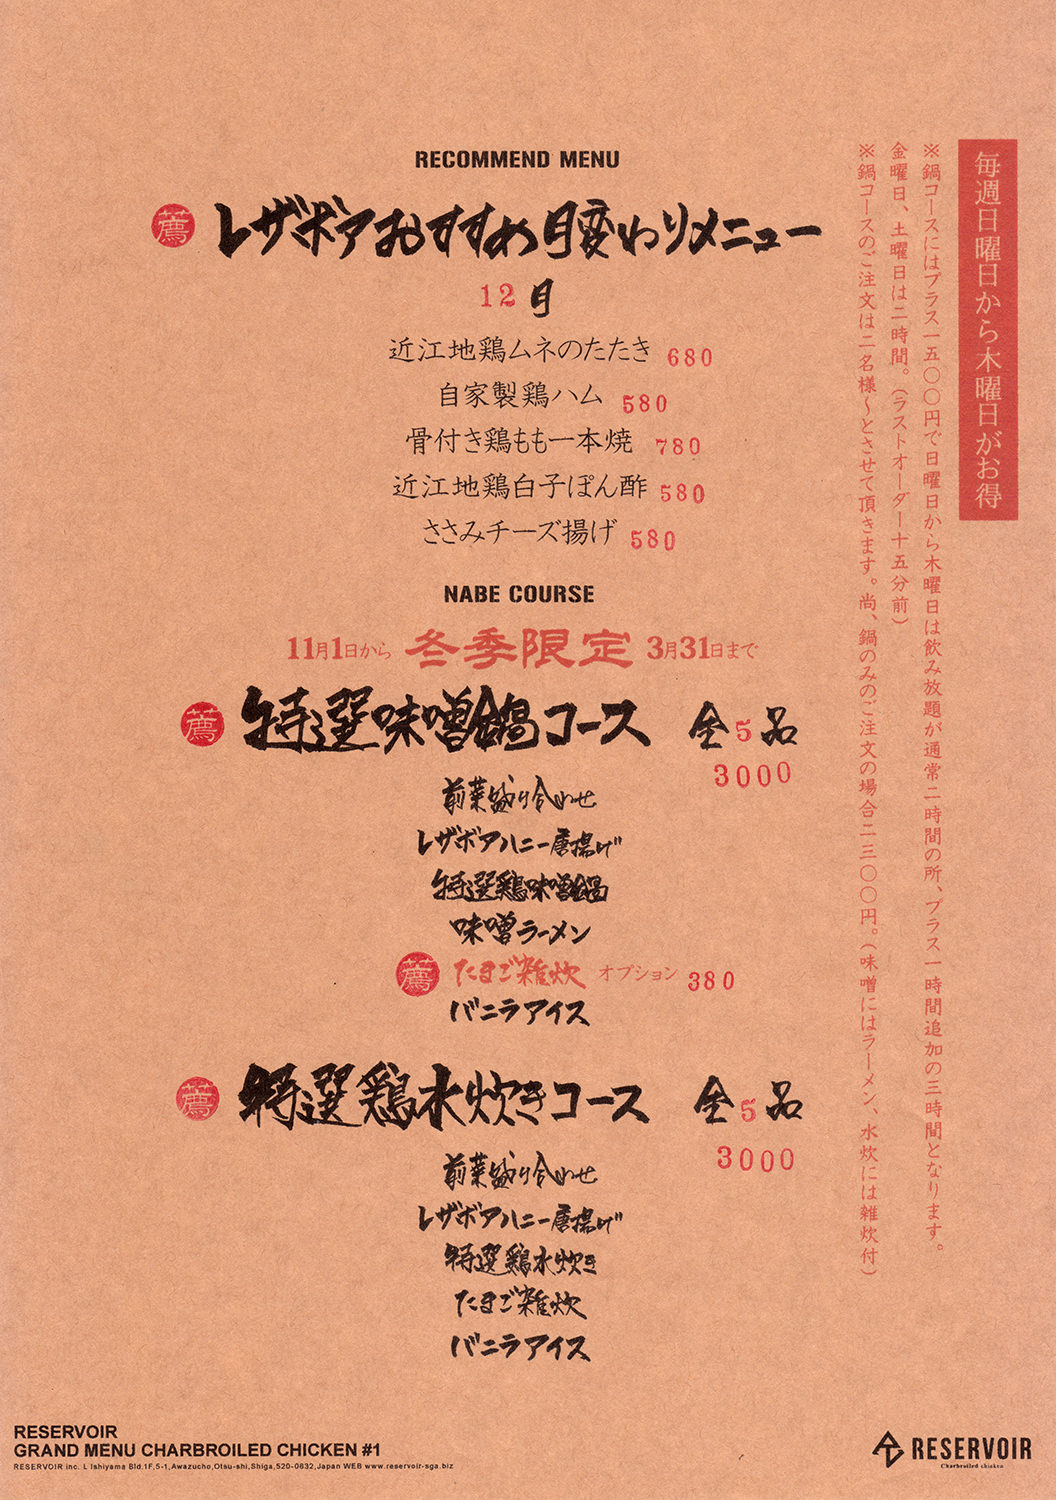 RECOMMEND MENU
薦 レザボアおすすめ月変わりメニュー
12月
近江地鶏ムネのたたき 680
自家製鶏ハム 580
骨付き鶏もも一本焼 780
近江地鶏白子ぽん酢 580
ささみチーズ揚げ 580
NABE COURSE
11月1日から 冬季限定 3月31日まで
薦 特選味噌鍋コース 全5品
3000
前菜盛り合わせ
レザボアハニー唐揚げ
特選鶏味噌鍋
味噌ラーメン
薦 たまご雑炊 オプション 380
バニラアイス
薦 特選鶏水炊きコース 全5品
3000
前菜盛り合わせ
レザボアハニー唐揚げ
特選鶏水炊き
たまご雑炊
バニラアイス
毎週日曜日から木曜日がお得
※鍋コースにはプラス一五〇〇円で日曜日から木曜日は飲み放題が通常二時間の所、プラス一時間追加の三時間となります。
金曜日、土曜日は二時間。(ラストオーダー十五分前)
※鍋コースのご注文は二名様~とさせて頂きます。尚、鍋のみのご注文の場合二三〇〇円。(味噌にはラーメン、水炊には雑炊付)
RESERVOIR
GRAND MENU CHARBROILED CHICKEN #1
RESERVOIR inc. L Ishiyama Bld.1F,5-1,Awazucho,Otsu-shi,Shiga,520-0832,Japan WEB www.reservoir-sga.biz
RESERVOIR
Charbroiled chicken